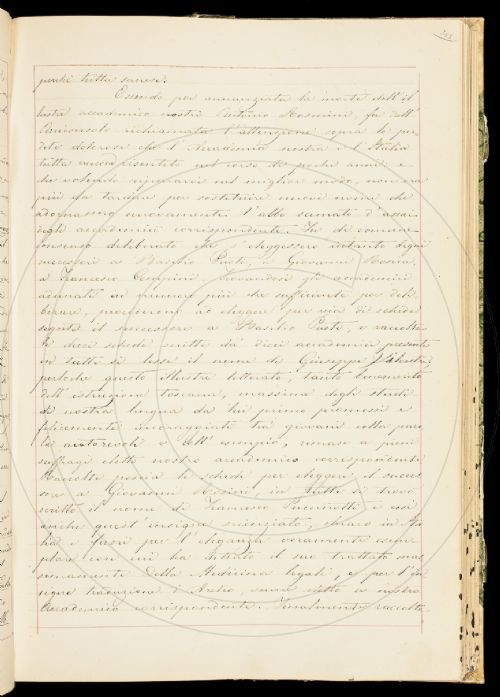 perchè tutta sanese.
Essendo poi annunziata la morte dell'il
lustre accademico nostro Antonio Rosmini, fu dall'
Arciconsolo richiamata l'attenzione sopra le per
dite dolorose che l'Accademia nostra e l'Italia
tutta aveva risentite nel corso di pochi anni: e
che volendo ripararvi nel miglior modo, non era
più da tardare per sostituire nuovi nomi che
adornassero nuovamente l'albo scemato d'assai
degli accademici corrispondenti. Fu di comune
consenso deliberato che s'eleggessero intanto i
successori a Basilio Puoti, a Giovanni Rosini,
a Francesco Trovandosi gli accademici
adunati in numero più che sufficiente per deli
berare, procederono ad eleggere per via di schede
segrete il successore a Basilio Puoti, e raccolte
le dieci schede scritte da' dieci accademici presenti
in tutte si lesse il nome di Giuseppe
perlochè questo illustre letterato, tanto benemerito
dell'istruzione toscana, massime degli studi
di nostra lingua da lui primo promossi e
felicemente incoraggiati tra' giovani colla paro
la autorevole e coll'esempio, rimase a pieni
suffragi eletto nostro accademico corrispondente.
Raccolte poscia le schede per eleggere il succes
sore a Giovanni Rosini, in tutte si trovò
scritto il nome di Francesco Puccinotti e così
anche quest'insigne scienziato, chiaro in Ita
lia e fuori per l'eleganza veramente esem
plare con cui ha dettato il suo trattato mas
simamente della Medicina legale, e per l'in
signe traduzione d'Areteo, venne eletto a nostro
Accademico corrispondente. Finalmente raccolte